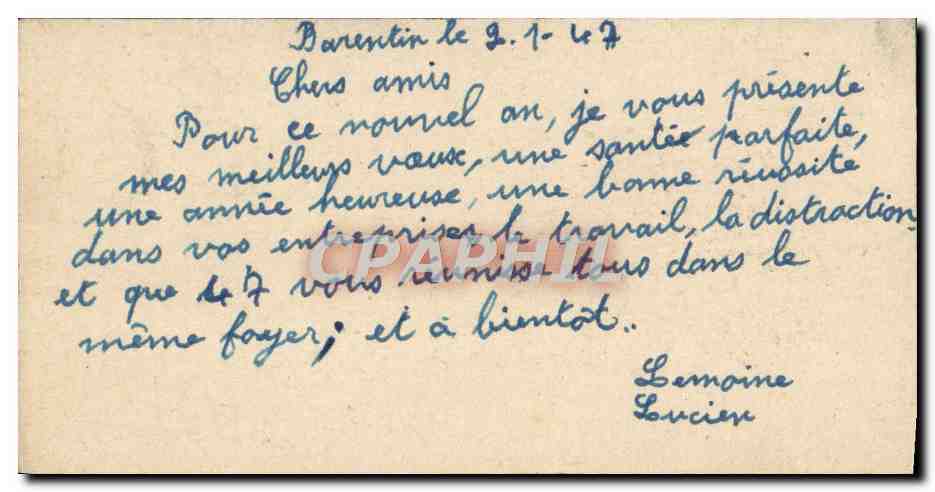 Barentin le 2.1-47
Chers amis
Pour ce nouvel an, je vous présente
mes meilleurs vœux, une santée parfaite,
une année heureuse, une bonne réussite
dans vos entreprises, le travail, la distraction
et que 47 vous réunisse tous dans le
même foyer; et à bientôt..
Lemoine
Lucien
CPAPHIL